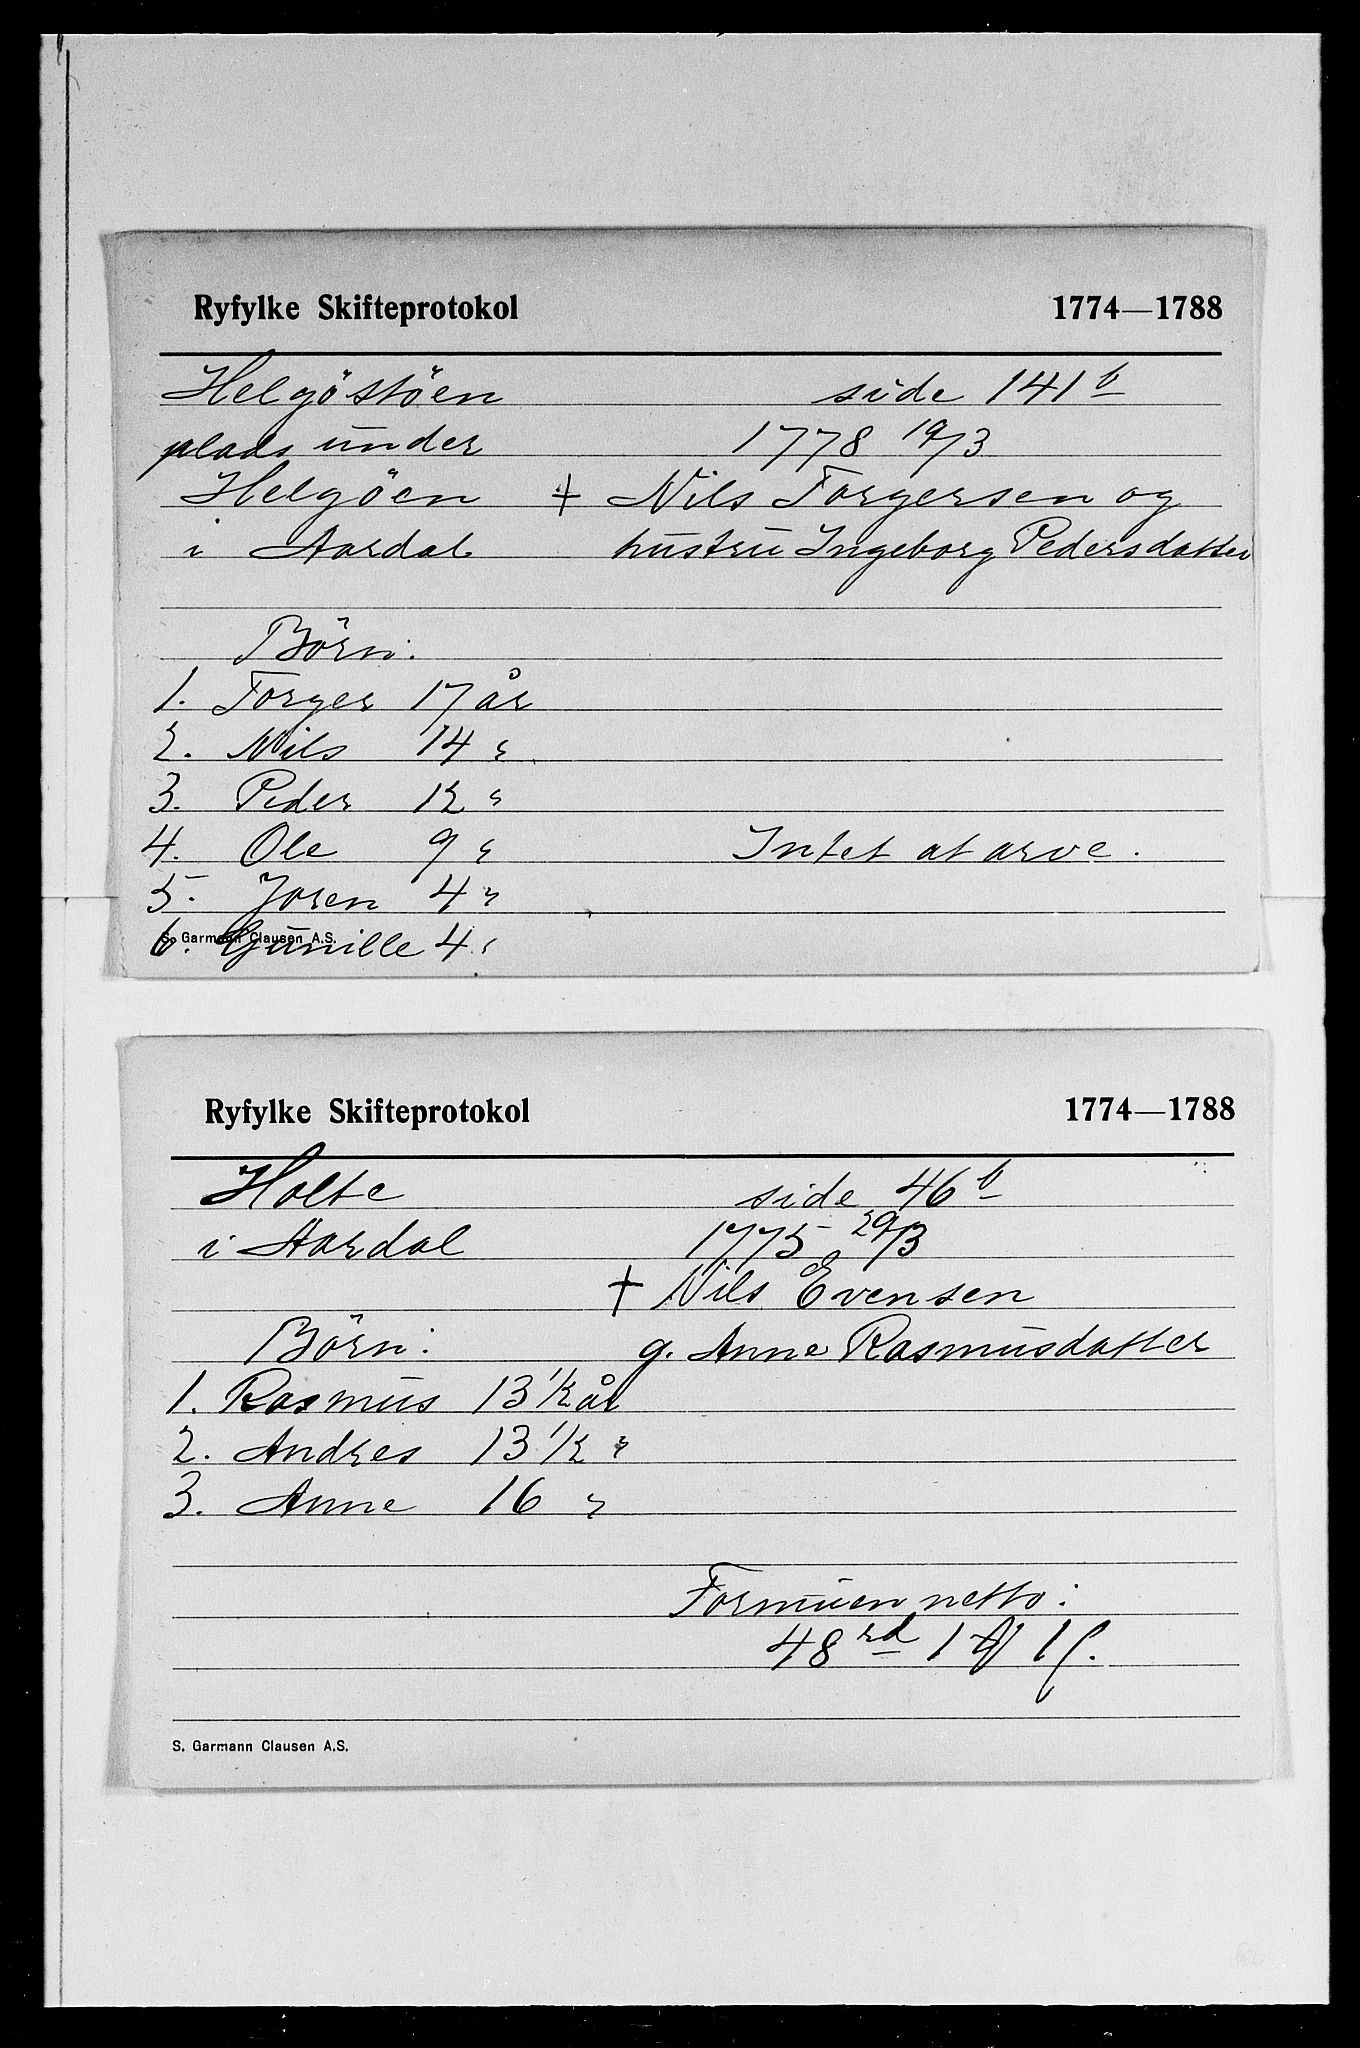 Ryfylke Skifteprotokol 1774—1788
Helgöstöen side 141 b
plads under 1778 19/3
Helgöen † Nils Torgersen og
i Aardal hustru Ingeborg Pedersdatter
Börn.
1. Torger 17 år
2. Nils 14 "
3. Peder 12 "
4. Ole 9 " Intet at arve.
5. Joren 4 "
6. Gunille 4 "
S. Garmann Clausen A.S.
Ryfylke Skifteprotokol 1774—1788
Holte side 46 b
i Aardal 1775 29/3
† Nils Evensen
Börn: g. Anne Rasmusdatter
1. Rasmus 13 1/2 år
2. Andres 13 1/2 "
3. Anne 16 "
Formuen netto:
48 rd 1 1
S. Garmann Clausen A.S.